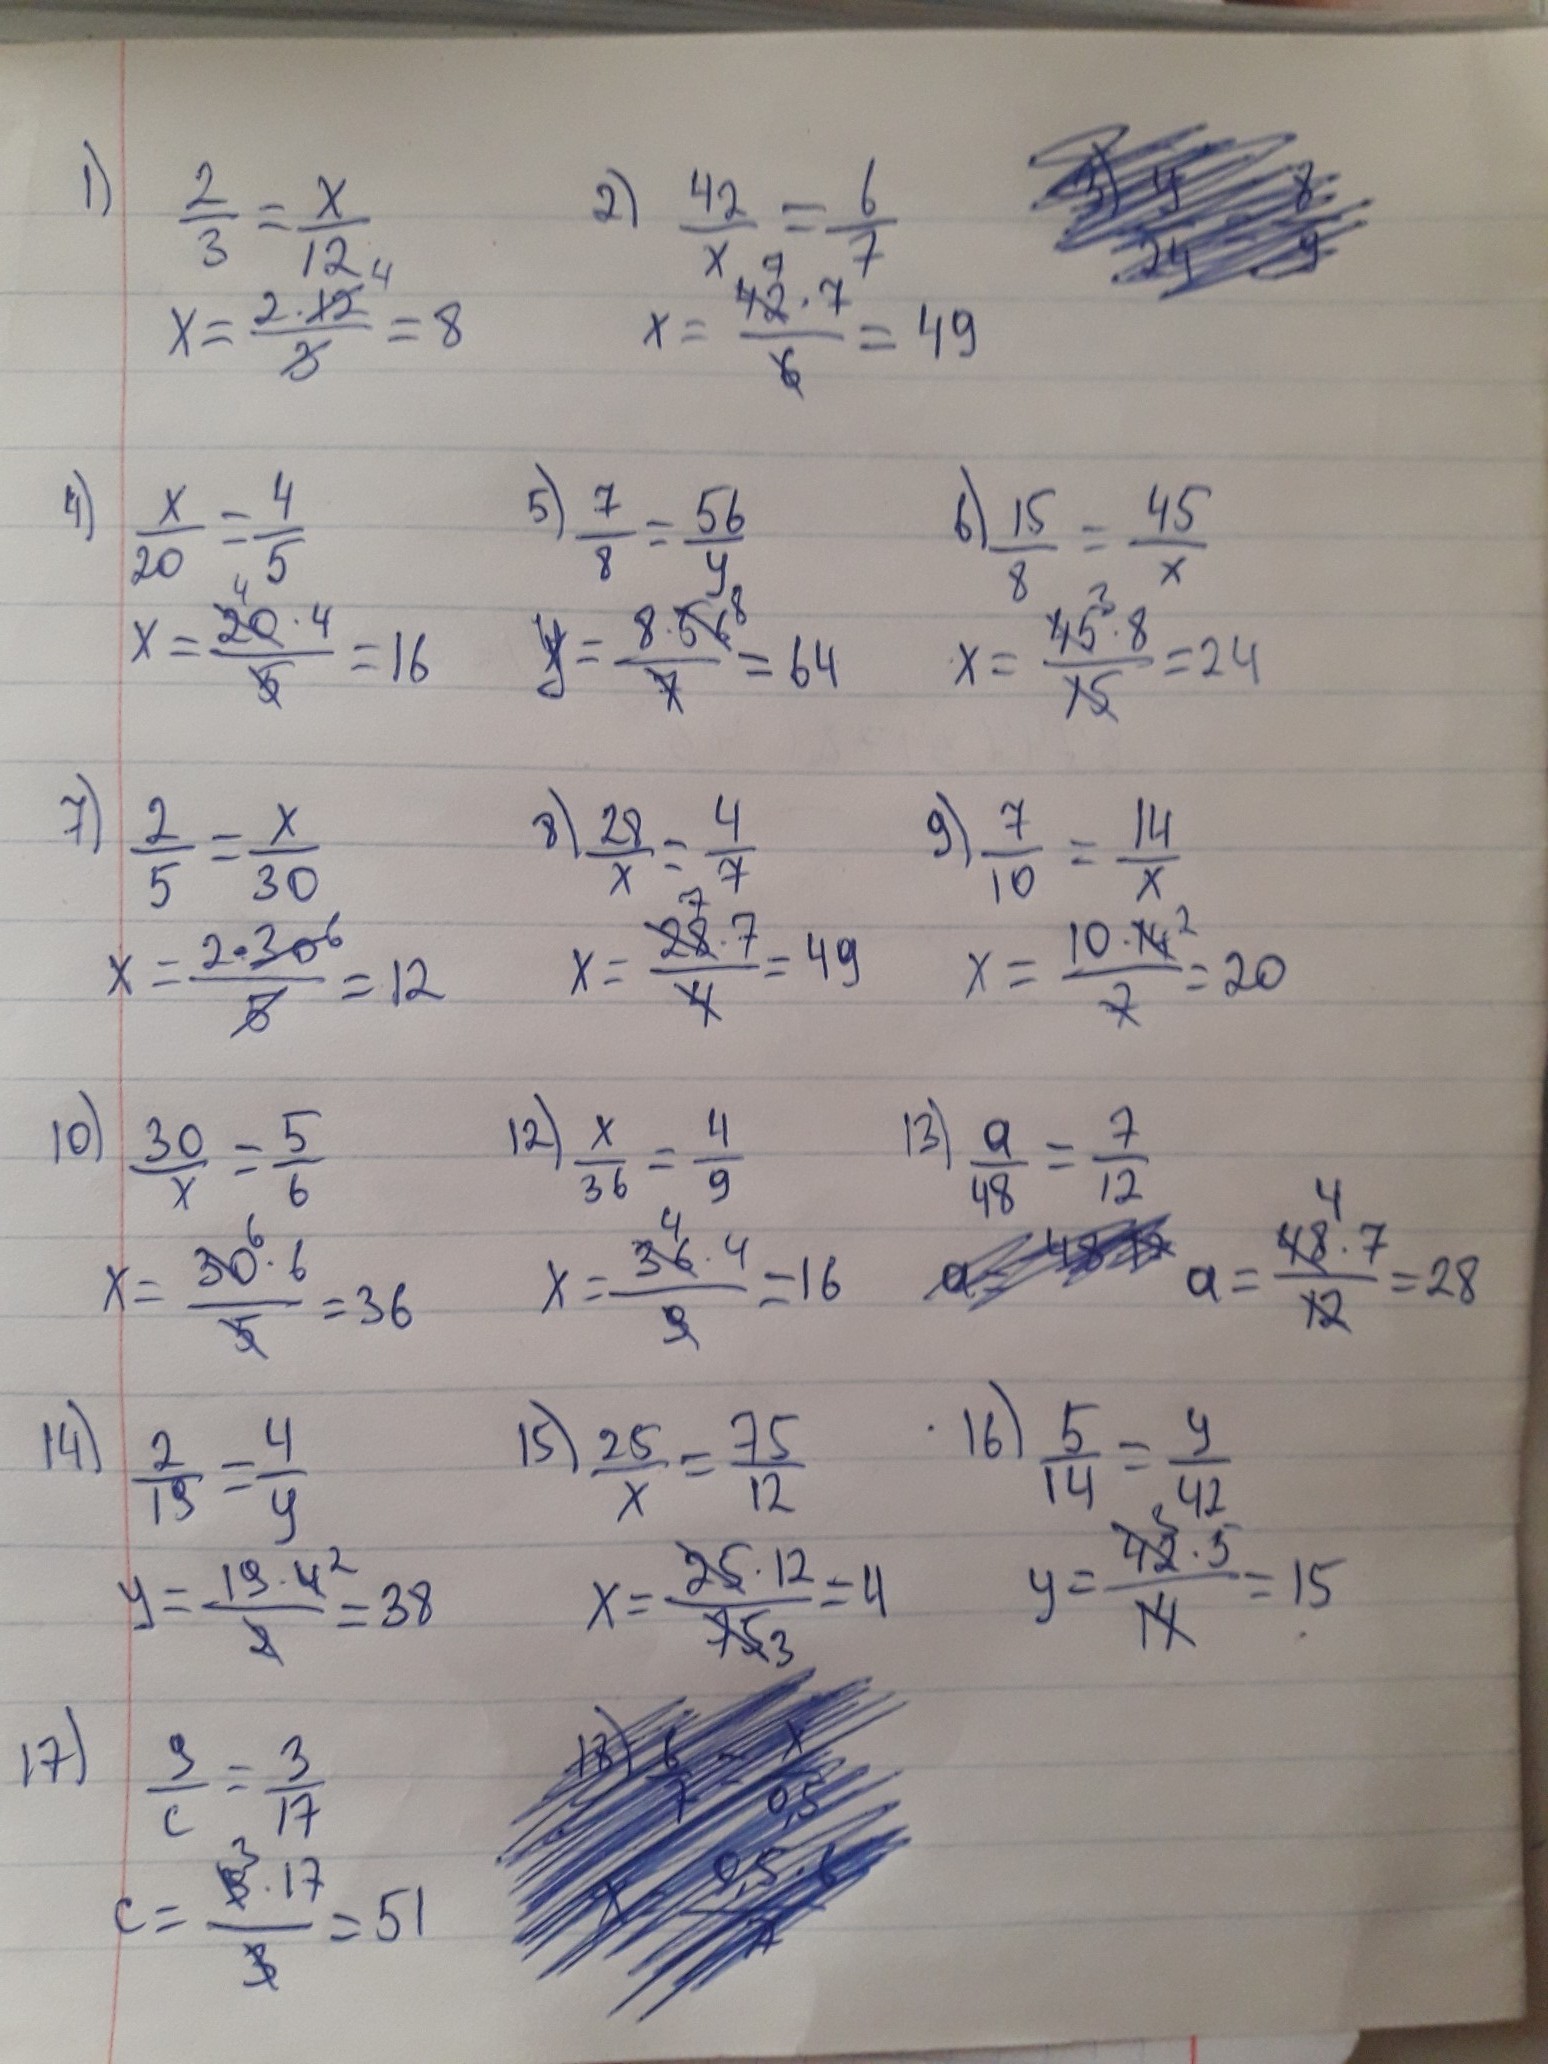 1) 2/3 = x/12
x = 2·12/3 = 8 4
2) 42/x = 6/7
x = 42·7/6 = 49 7
4) x/20 = 4/5
x = 20·4/5 = 16 4
5) 7/8 = 56/y
y = 8·56/7 = 64 8
6) 15/8 = 45/x
x = 45·8/15 = 24 3
7) 2/5 = x/30
x = 2·30/5 = 12 6
8) 28/x = 4/7
x = 28·7/4 = 49 7
9) 7/10 = 14/x
x = 10·14/7 = 20 2
10) 30/x = 5/6
x = 30·6/5 = 36 6
12) x/36 = 4/9
x = 36·4/9 = 16 4
13) a/48 = 7/12
a = 48·7/12 = 28 4
14) 2/19 = 4/y
y = 19·4/2 = 38 2
15) 25/x = 75/12
x = 25·12/75 = 4 3
16) 5/14 = y/42
y = 42·5/14 = 15 3
17) 9/c = 3/17
c = 9·17/3 = 51 3